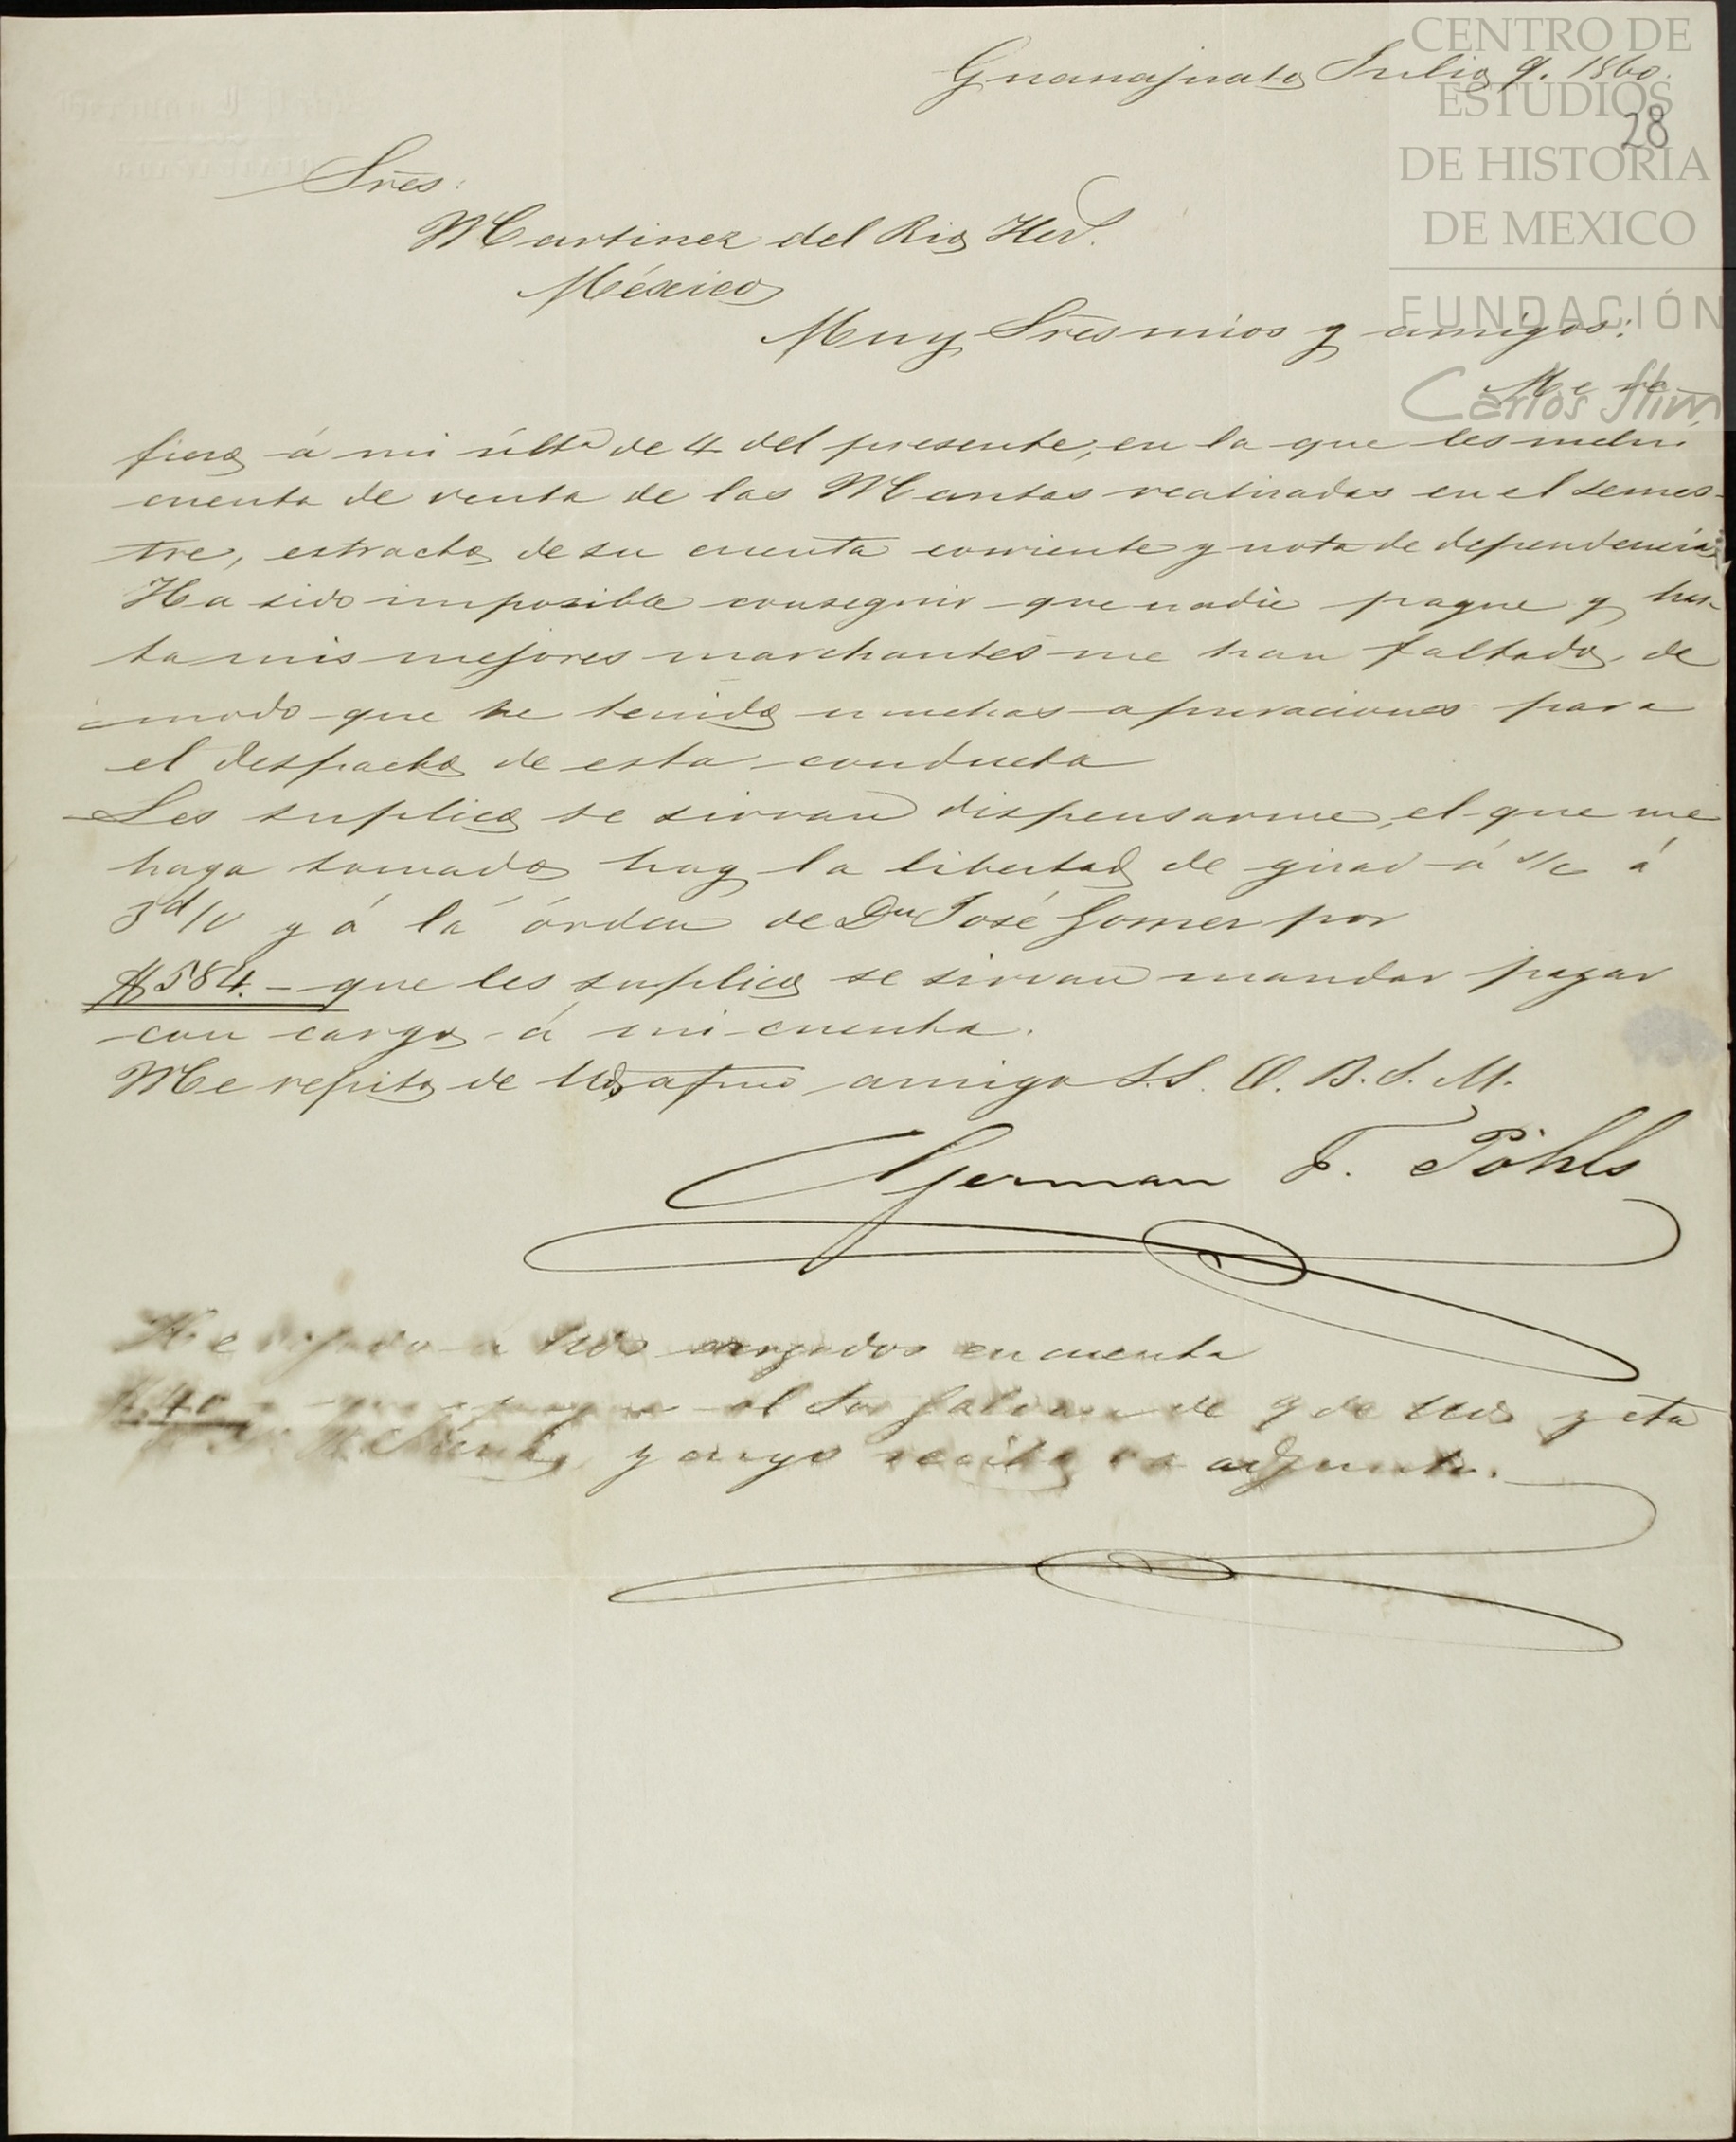 Guanajuato Julio 9. 1860.
CENTRO DE
ESTUDIOS
28
DE HISTORIA
DE MEXICO
FUNDACIÓN
Carlos Slim
Sres:
Martinez del Rio Hes.
México
Muy Sres mios y amigos:
Me re-
fiero á mi últa de 4 del presente, en la que les
cuenta de venta de las Mantas realizadas en el semes-
tre, estracto de su cuenta corriente y nota de dependencias
Ha sido imposible conseguir que nadie pague y has-
ta mis mejores marchantes me han faltado, de
modo que he tenido muchas apuraciones para
el despacho de esta conducta
Les suplico se sirvan dispensarme, el que me
haya tomado hoy la libertad de girar á c/c á
3 d/v y á la órden de Dn José Gomez por
$584.- que les suplico se sirvan mandar pagar
con cargo á mi cuenta.
Me repito de Uds afmo amigo S.S. Q. B. S. M.
German F. Pöhls
He á Uds cargados en cuenta
$40 al Sor de q de Uds y cta
y cuyo recibo va adjunto.